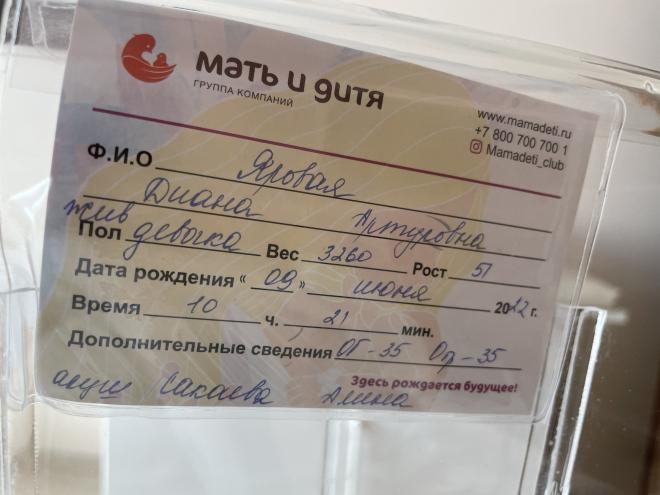 мать и дитя
ГРУППА КОМПАНИЙ
www.mamadeti.ru
+7 800 700 700 1
Mamadeti_club
Ф.И.О Яровая
Диана Артуровна
жив
Пол девочка Вес 3260 Рост 51
Дата рождения "09" июня 2022 г.
Время 10 ч. 21 мин.
Дополнительные сведения ОГ-35 Ог-35
Здесь рождается будущее!
акуш Сакаева Амина